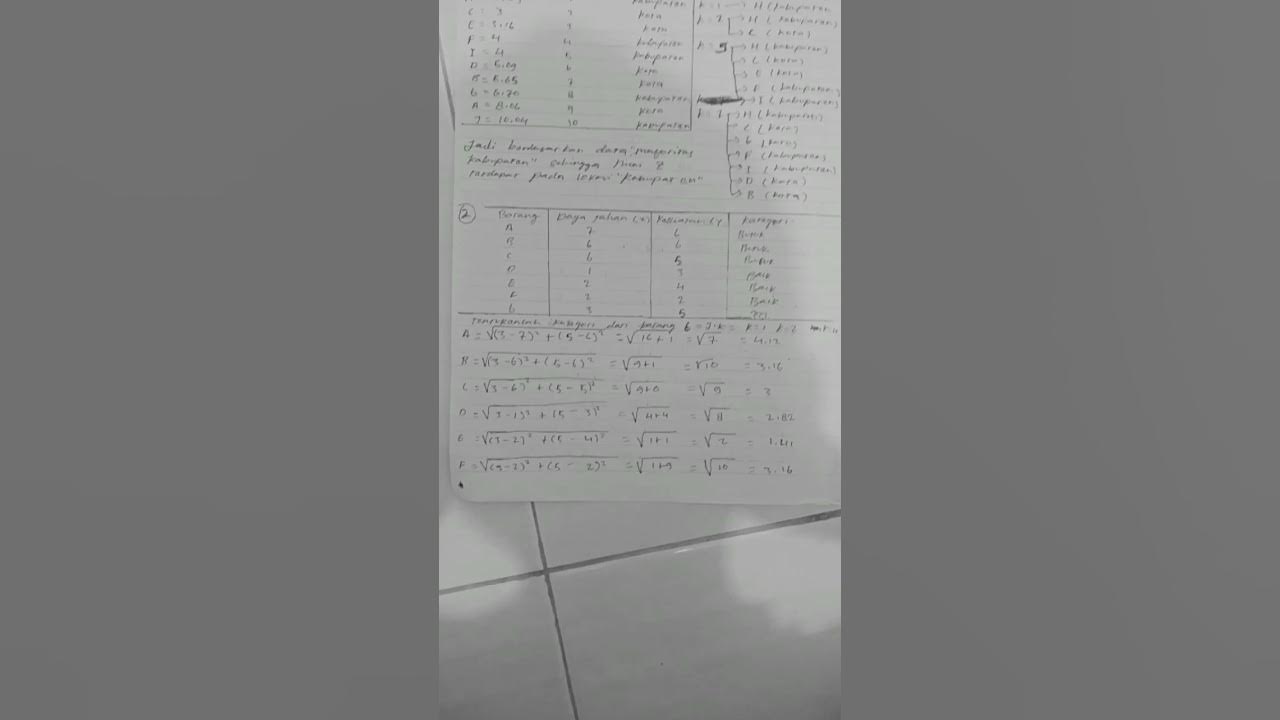 kabupaten K = 1 → H (kabupaten)
C = 3 2 kota K = 2 → H (kabupaten)
E = 3.16 3 kota → C (kota)
F = 4 4 kabupaten K = 5 → H (kabupaten)
I = 4 5 kabupaten → C (kota)
D = 5.09 6 kota → E (kota)
B = 5.65 7 kota → F (kabupaten)
G = 6.70 8 kabupaten → I (kabupaten)
A = 8.06 9 kota K = 7 → H (kabupaten)
J = 10.04 10 kabupaten → C (kota)
→ E (kota)
→ F (kabupaten)
→ I (kabupaten)
→ D (kota)
→ B (kota)
Jadi berdasarkan data "mayoritas
kabupaten" sehingga
terdapat pada lokasi "kabupaten"
② Barang Daya tahan (x) Kekuatan (y) Kategori
A 7 6 Buruk
B 6 6 Buruk
C 6 5 Buruk
D 1 3 Baik
E 2 4 Baik
F 2 2 Baik
G 3 5 ??
Tentukanlah kategori dari barang G = K = 1 K = 2
A = √(3-7)² + (5-6)² = √16+1 = √7 = 4.12
B = √(3-6)² + (5-6)² = √9+1 = √10 = 3.16
C = √(3-6)² + (5-5)² = √9+0 = √9 = 3
D = √(3-1)² + (5-3)² = √4+4 = √8 = 2.82
E = √(3-2)² + (5-4)² = √1+1 = √2 = 1.41
F = √(3-2)² + (5-2)² = √1+9 = √10 = 3.16